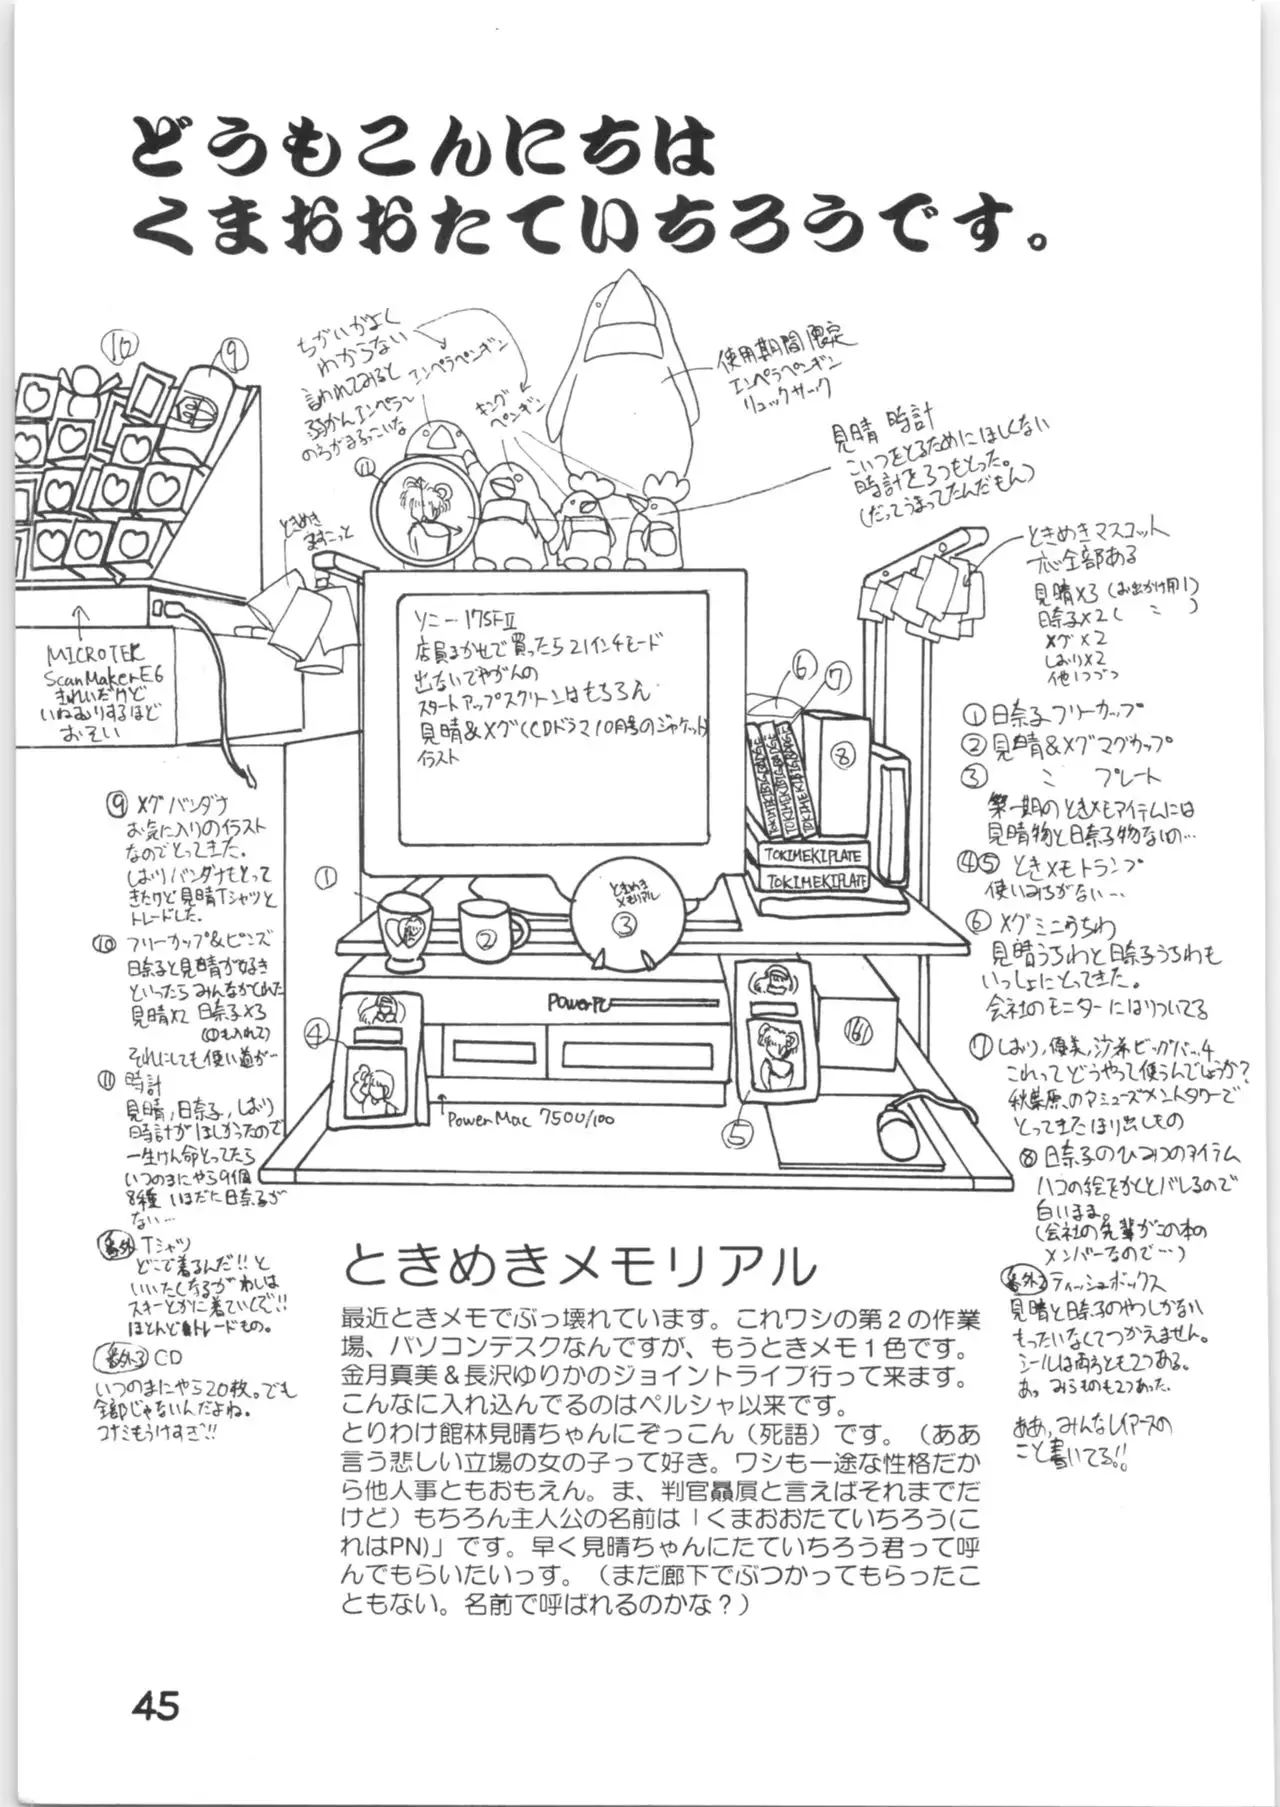 どうもこんにちは
くまおおたていちろうです。
ちがいがよく
わからない
言われてみると
エンペラペンギン
キング
ペンギン
使用期間限定
エンペラペンギン
リュックサック
見晴 時計
こいつをとるためにほしくない
時計を3つもとった。
(だってうまってたんだもん)
⑩
⑨
⑪
ときめき
ますこっと
MICROTEK
ScanMaker E6
きれいだけど
いねむりするほど
おそい
ソニー 17SFⅡ
店員まかせで買ったら21インチモード
出ないでやがんの
スタートアップスクリーンはもちろん
見晴&メグ(CDドラマ10月号のジャケット)
イラスト
ときめきマスコット
全部ある
見晴×3(お出かけ用1)
日奈子×2( 〃 )
メグ×2
しおり×2
他1つづつ
⑥
⑦
⑧
TOKIMEKI PLATE
TOKIMEKI PLATE
①
②
ときめき
メモリアル
③
④
PowerPC
⑤
PowerMac 7500/100
①日奈子フリーカップ
②見晴&メグマグカップ
③ 〃 プレート
第一期のときメモアイテムには
見晴物と日奈子物ないの…
④⑤ ときメモトランプ
使いみちがない…
⑥ メグミニうちわ
見晴うちわと日奈子うちわも
いっしょにとってきた。
会社のモニターにはりついてる
⑦しおり,優美,沙希ビッグバッチ
これってどうやって使うんでしょうか?
秋葉原のアミューズメントタワーで
とってきたほり出しもの
⑧ 日奈子のひみつのアイテム
ハコの絵をかくとバレるので
白いまま。
(会社の先輩がこの本の
メンバーなので…)
番外2 ティッシュボックス
見晴と日奈子のやつしかない
もったいなくてつかえません。
シールは両方とも2つある。
ああ,みんなレイアースの
こと書いてる!!
⑨ メグバンダナ
お気に入りのイラスト
なのでとってきた。
しおりバンダナもとって
きたけど見晴Tシャツと
トレードした。
⑩ フリーカップ&ピンズ
日奈子と見晴が好き
といったらみんながくれた
見晴×2 日奈子×3
(①も入れて)
それにしても使い道が…
⑪ 時計
見晴,日奈子,しおり
時計がほしかったので
一生けん命とってたら
いつのまにやら9個
8種 いまだに日奈子が
ない…
番外 Tシャツ
どこで着るんだ!!と
いいたくなるがわしは
スキーとかに着ていくで!!
ほとんどトレードもの。
番外3 CD
いつのまにやら20枚。でも
全部じゃないんだよね。
コナミもうけすぎ!!
ときめきメモリアル
最近ときメモでぶっ壊れています。これワシの第2の作業
場、パソコンデスクなんですが、もうときメモ1色です。
金月真美&長沢ゆりかのジョイントライブ行って来ます。
こんなに入れ込んでるのはペルシャ以来です。
とりわけ館林見晴ちゃんにぞっこん(死語)です。(ああ
言う悲しい立場の女の子って好き。ワシも一途な性格だか
ら他人事ともおもえん。ま、判官贔屓と言えばそれまでだ
けど)もちろん主人公の名前は「くまおおたていちろう(こ
れはPN)」です。早く見晴ちゃんにたていちろう君って呼
んでもらいたいっす。(まだ廊下でぶつかってもらったこ
ともない。名前で呼ばれるのかな?)
45